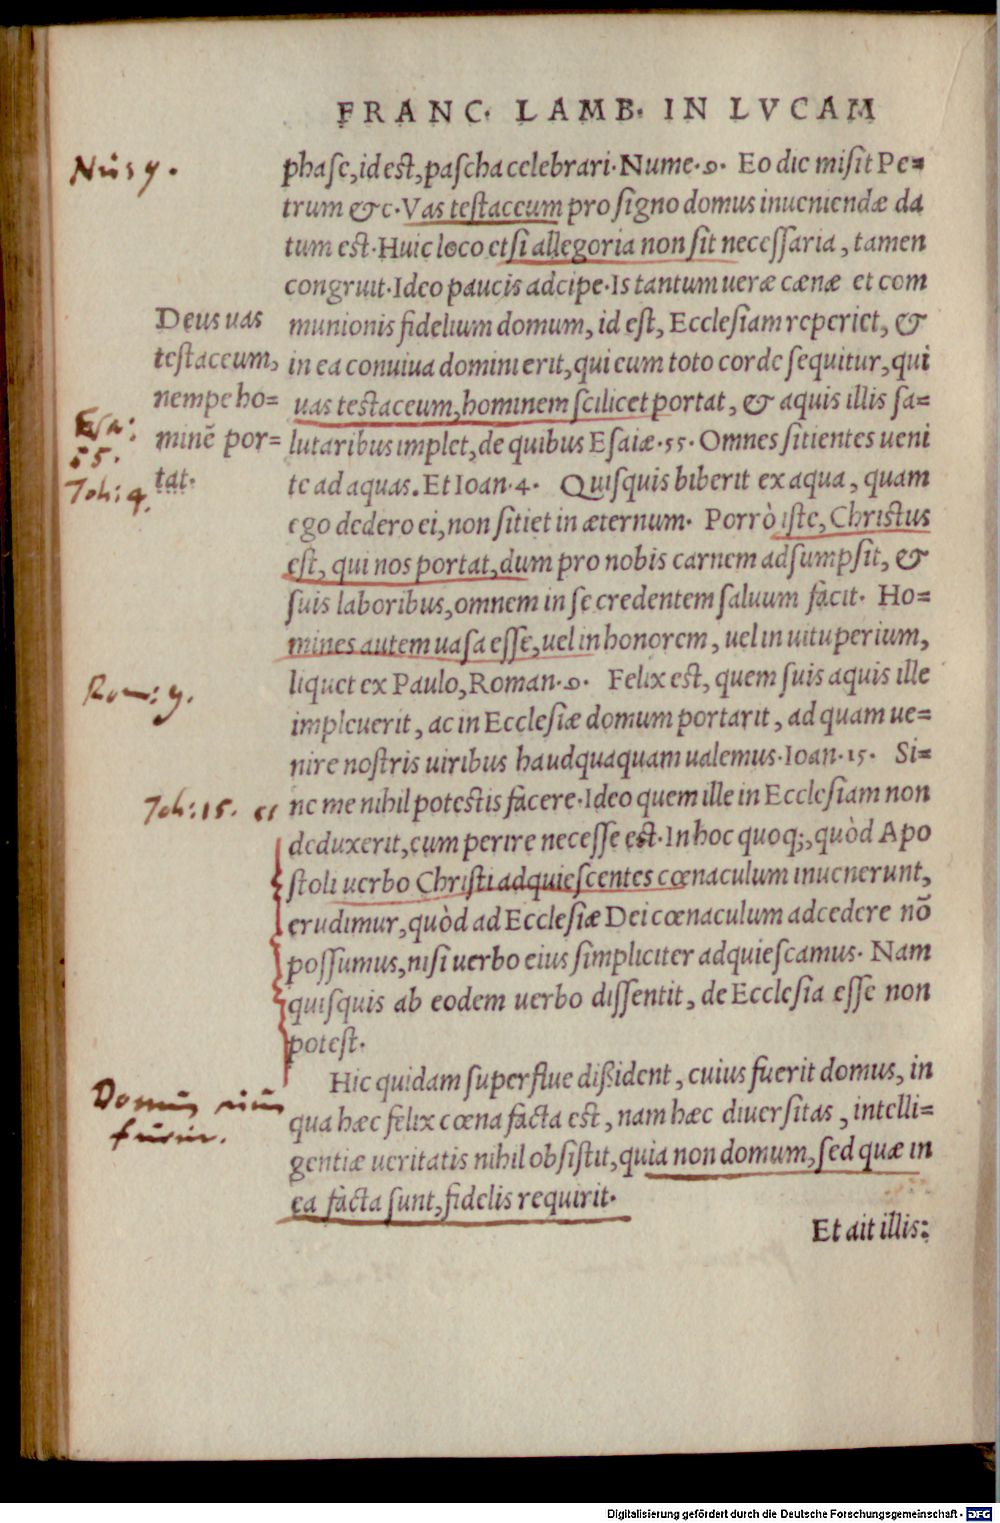 FRANC. LAMB. IN LVCAM
phase, id est, pascha celebrari. Nume. 9. Eo die misit Pe=
trum &c. Vas testaceum pro signo domus inueniendæ da
tum est. Huic loco etsi allegoria non sit necessaria, tamen
congruit. Ideo paucis adcipe. Is tantum ueræ cænæ et com
munionis fidelium domum, id est, Ecclesiam reperiet, &
in ea conuiua domini erit, qui eum toto corde sequitur, qui
uas testaceum, hominem scilicet portat, & aquis illis sa=
lutaribus implet, de quibus Esaiæ. 55. Omnes sitientes ueni
te ad aquas. Et Ioan. 4. Quisquis biberit ex aqua, quam
ego dedero ei, non sitiet in æternum. Porrò iste, Christus
est, qui nos portat, dum pro nobis carnem adsumpsit, &
suis laboribus, omnem in se credentem saluum fàcit. Ho=
mines autem uasa esse, uel in honorem, uel in uituperium,
liquet ex Paulo, Roman. 9. Felix est, quem suis aquis ille
impleuerit, ac in Ecclesiæ domum portarit, ad quam ue=
nire nostris uiribus haudquaquam ualemus. Ioan. 15. Si=
ne me nihil potestis facere. Ideo quem ille in Ecclesiam non
deduxerit, eum perire necesse est. In hoc quoq;, quòd Apo
stoli uerbo Christi adquiescentes cœnaculum inuenerunt,
erudimur, quòd ad Ecclesiæ Dei cœnaculum adcedere nō
possumus, nisi uerbo eius simpliciter adquiescamus. Nam
quisquis ab eodem uerbo dissentit, de Ecclesia esse non
potest.
Hic quidam superflue dißident, cuius fuerit domus, in
qua hæc felix cœna facta est, nam hæc diuersitas, intelli=
gentiæ ueritatis nihil obsistit, quia non domum, sed quæ in
ea fàcta sunt, fidelis requirit.
Et ait illis:
Deus uas
testaceum,
nempe ho=
minē por=
tat.
Esa:
55.
Joh: 4.
Rom: 9.
Joh: 15.
Domus
Digitalisierung gefördert durch die Deutsche Forschungsgemeinschaft - DFG